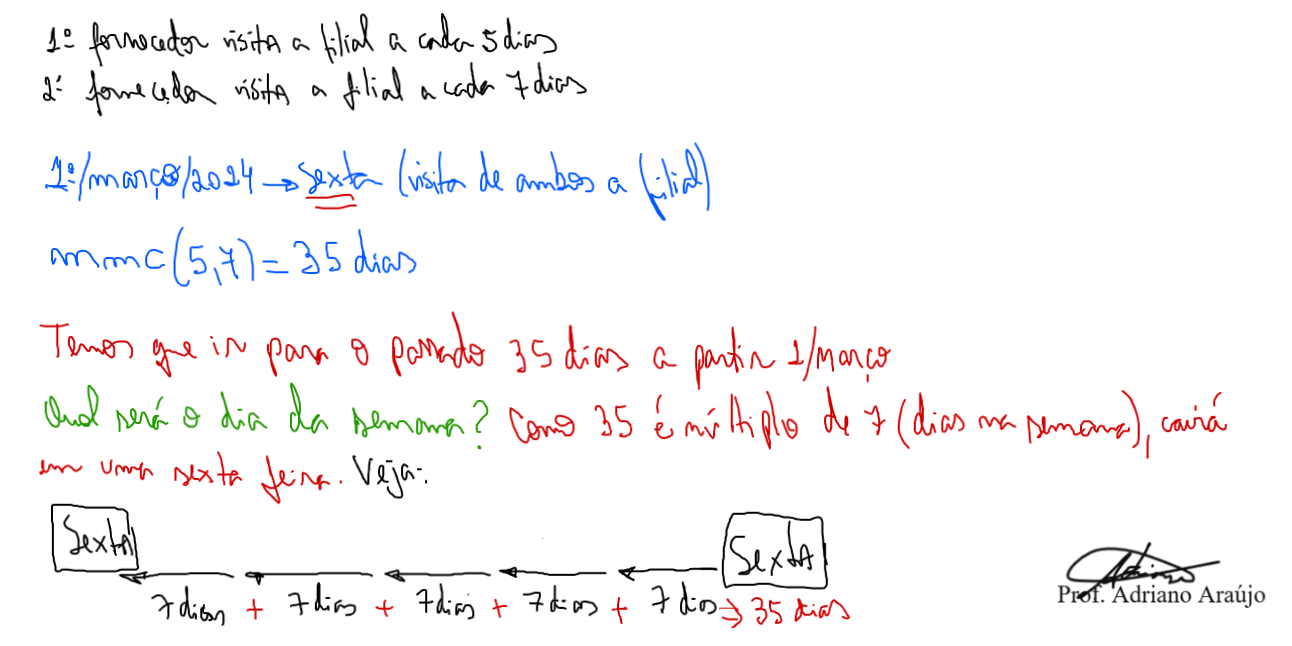 1º fornecedor visita a filial a cada 5 dias
2º fornecedor visita a filial a cada 7 dias
1º/março/2024 → Sexta (visita de ambos a filial)
mmc(5,7) = 35 dias
Temos que ir para o passado 35 dias a partir 1/março
Qual será o dia da semana? Como 35 é múltiplo de 7 (dias na semana), cairá
em uma sexta feira. Veja:
Sexta
Sexta
7 dias + 7 dias + 7 dias + 7 dias + 7 dias → 35 dias
Prof. Adriano Araújo